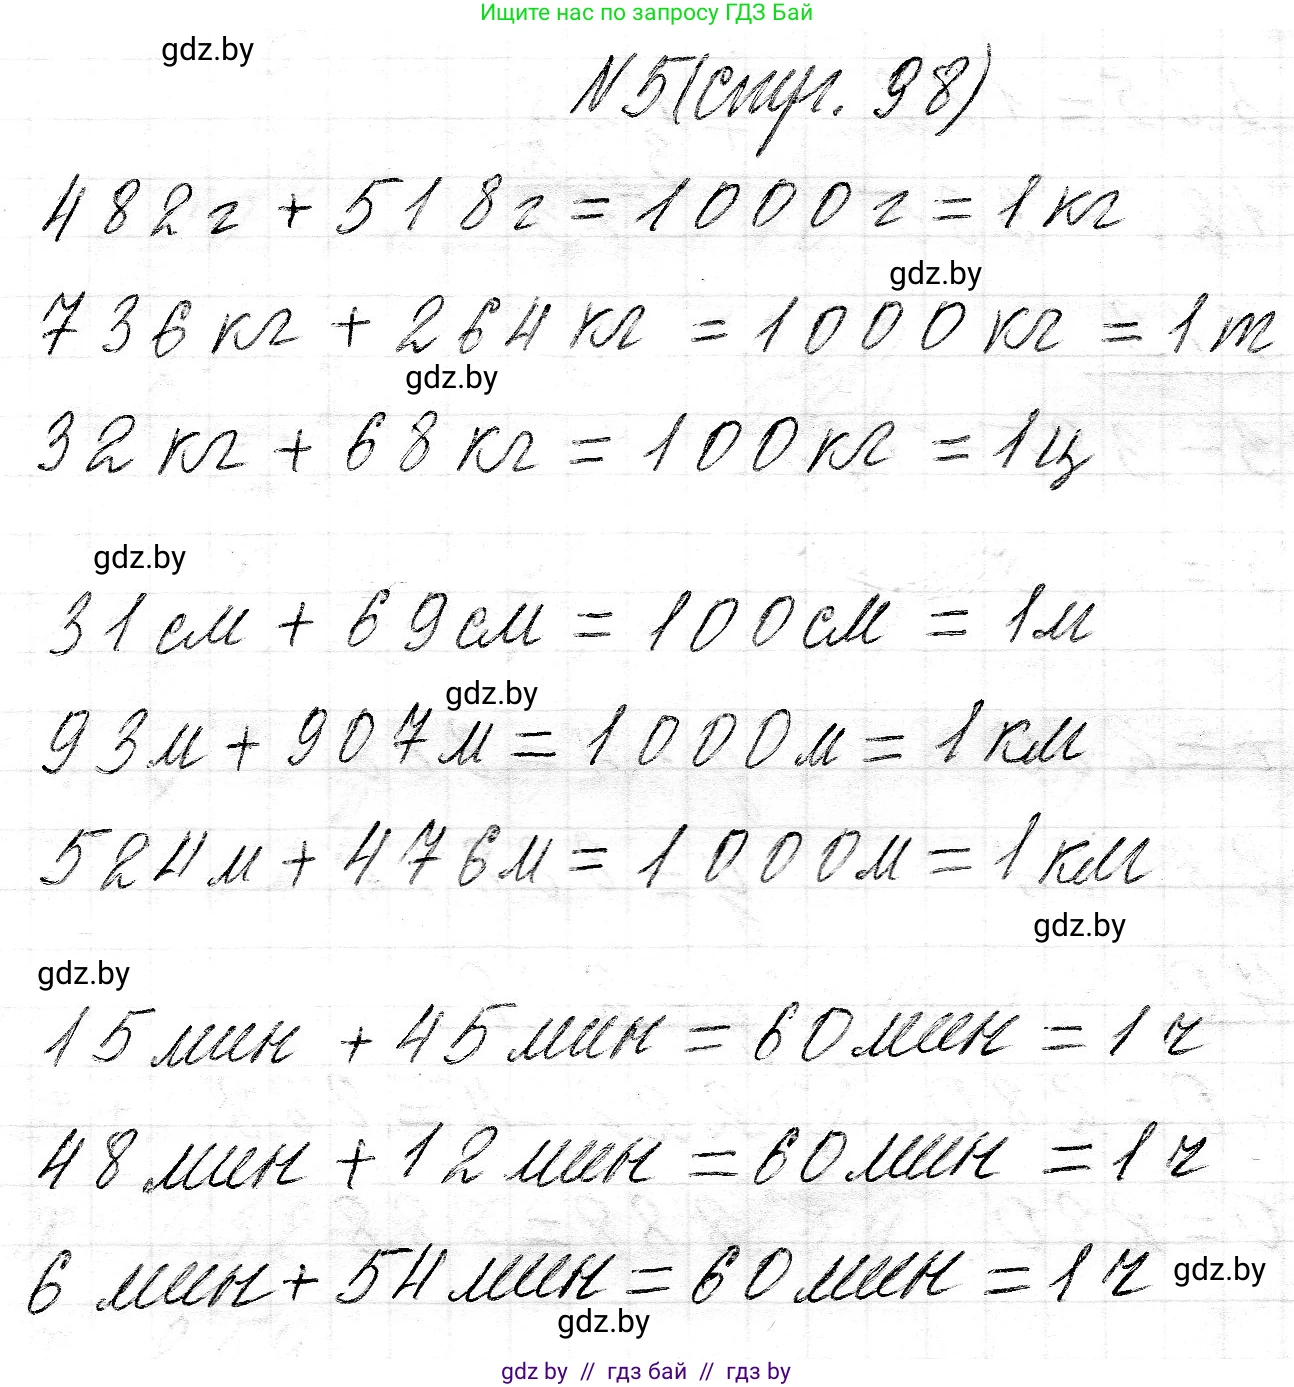 Ищите нас по запросу ГДЗ Бай
gdz.by
N5(стр. 98)
482г + 518г = 1000г = 1кг
gdz.by
736кг + 264кг = 1000кг = 1т
gdz.by
32кг + 68кг = 100кг = 1ц
gdz.by
31см + 69см = 100см = 1м
gdz.by
93м + 907м = 1000м = 1км
524м + 476м = 1000м = 1км
gdz.by
gdz.by
15мин + 45мин = 60мин = 1ч
48мин + 12мин = 60мин = 1ч
6 мин + 54мин = 60мин = 1ч
gdz.by
gdz.by
gdz by // гдз бай // гдз by